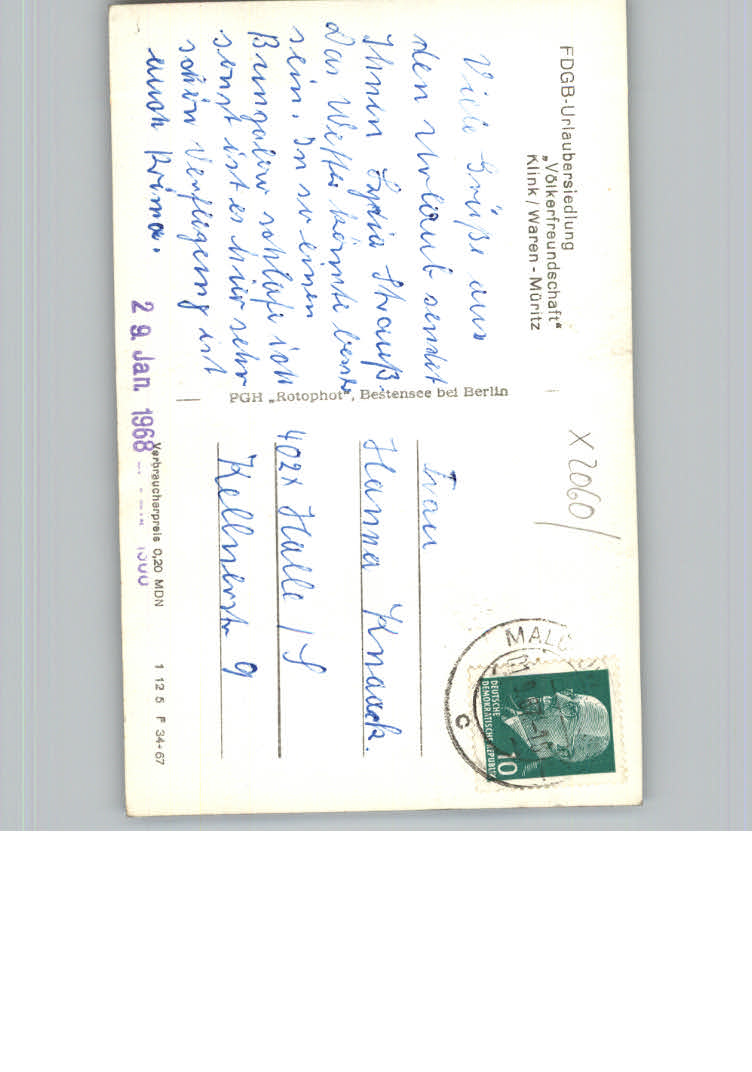 FDGB-Urlaubersiedlung
„Völkerfreundschaft“
Klink / Waren - Müritz
Viele Grüße aus
den Urlaub sendet
Ihnen Lydia Strauß.
Das Wetter könnte besser
sein. In so einen
Bungalow schlafe ich
sonst ist es hier sehr
schön Verflegung ist
auch Prima.
29. Jan. 1968
PGH „Rotophot“, Bestensee bei Berlin
X 2060/
MALC
C
DEUTSCHE
DEMOKRATISCHE REPUBLIK
10
Frau
Hanna Knaack.
402x Halle / S
Kellnerstr 9
Verbraucherpreis 0,20 MDN
1 12 5 F 34-67